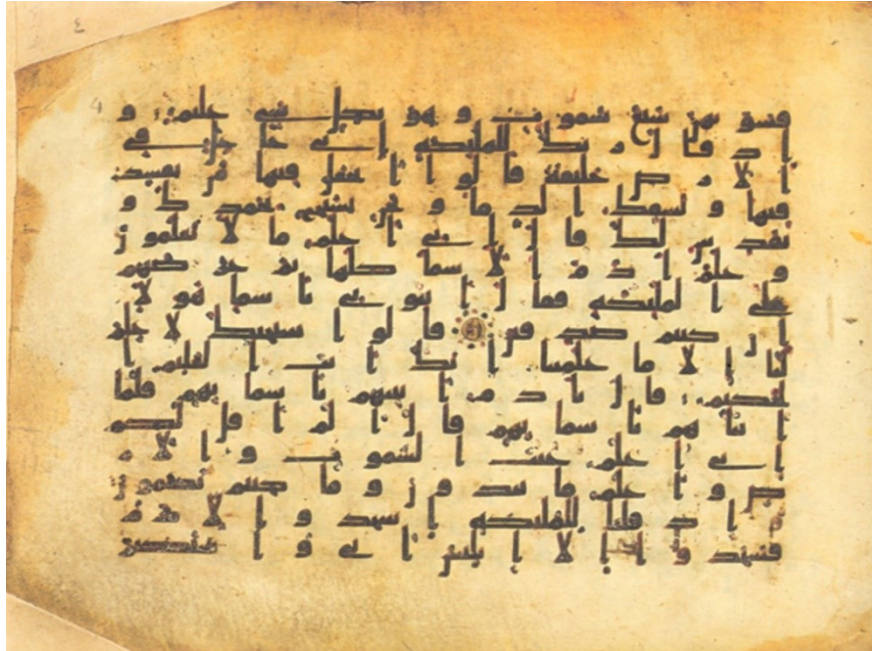 فسويهن سبع سموت و هو بكل شي عليم و
اذ قال ربك للمليكه اني جاعل في
الارض خليفه قالوا اتجعل فيها من يفسد
فيها و يسفك الدما و نحن نسبح بحمدك و
نقدس لك قال اني اعلم ما لا تعلمون
و علم ادم الاسما كلها ثم عرضهم
على المليكه فقال انبوني باسما هولا
ان كنتم صدقين قالوا سبحنك لا علم
لنا الا ما علمتنا انك انت العليم ا
لحكيم قال يادم انبيهم باسمايهم فلما
انباهم باسمايهم قال الم اقل لكم
اني اعلم غيب السموت و الا
رض و اعلم ما تبدون و ما كنتم تكتمون
و اذ قلنا للمليكه اسجدوا لادم
فسجدوا الا ابليس ابى و استكبر